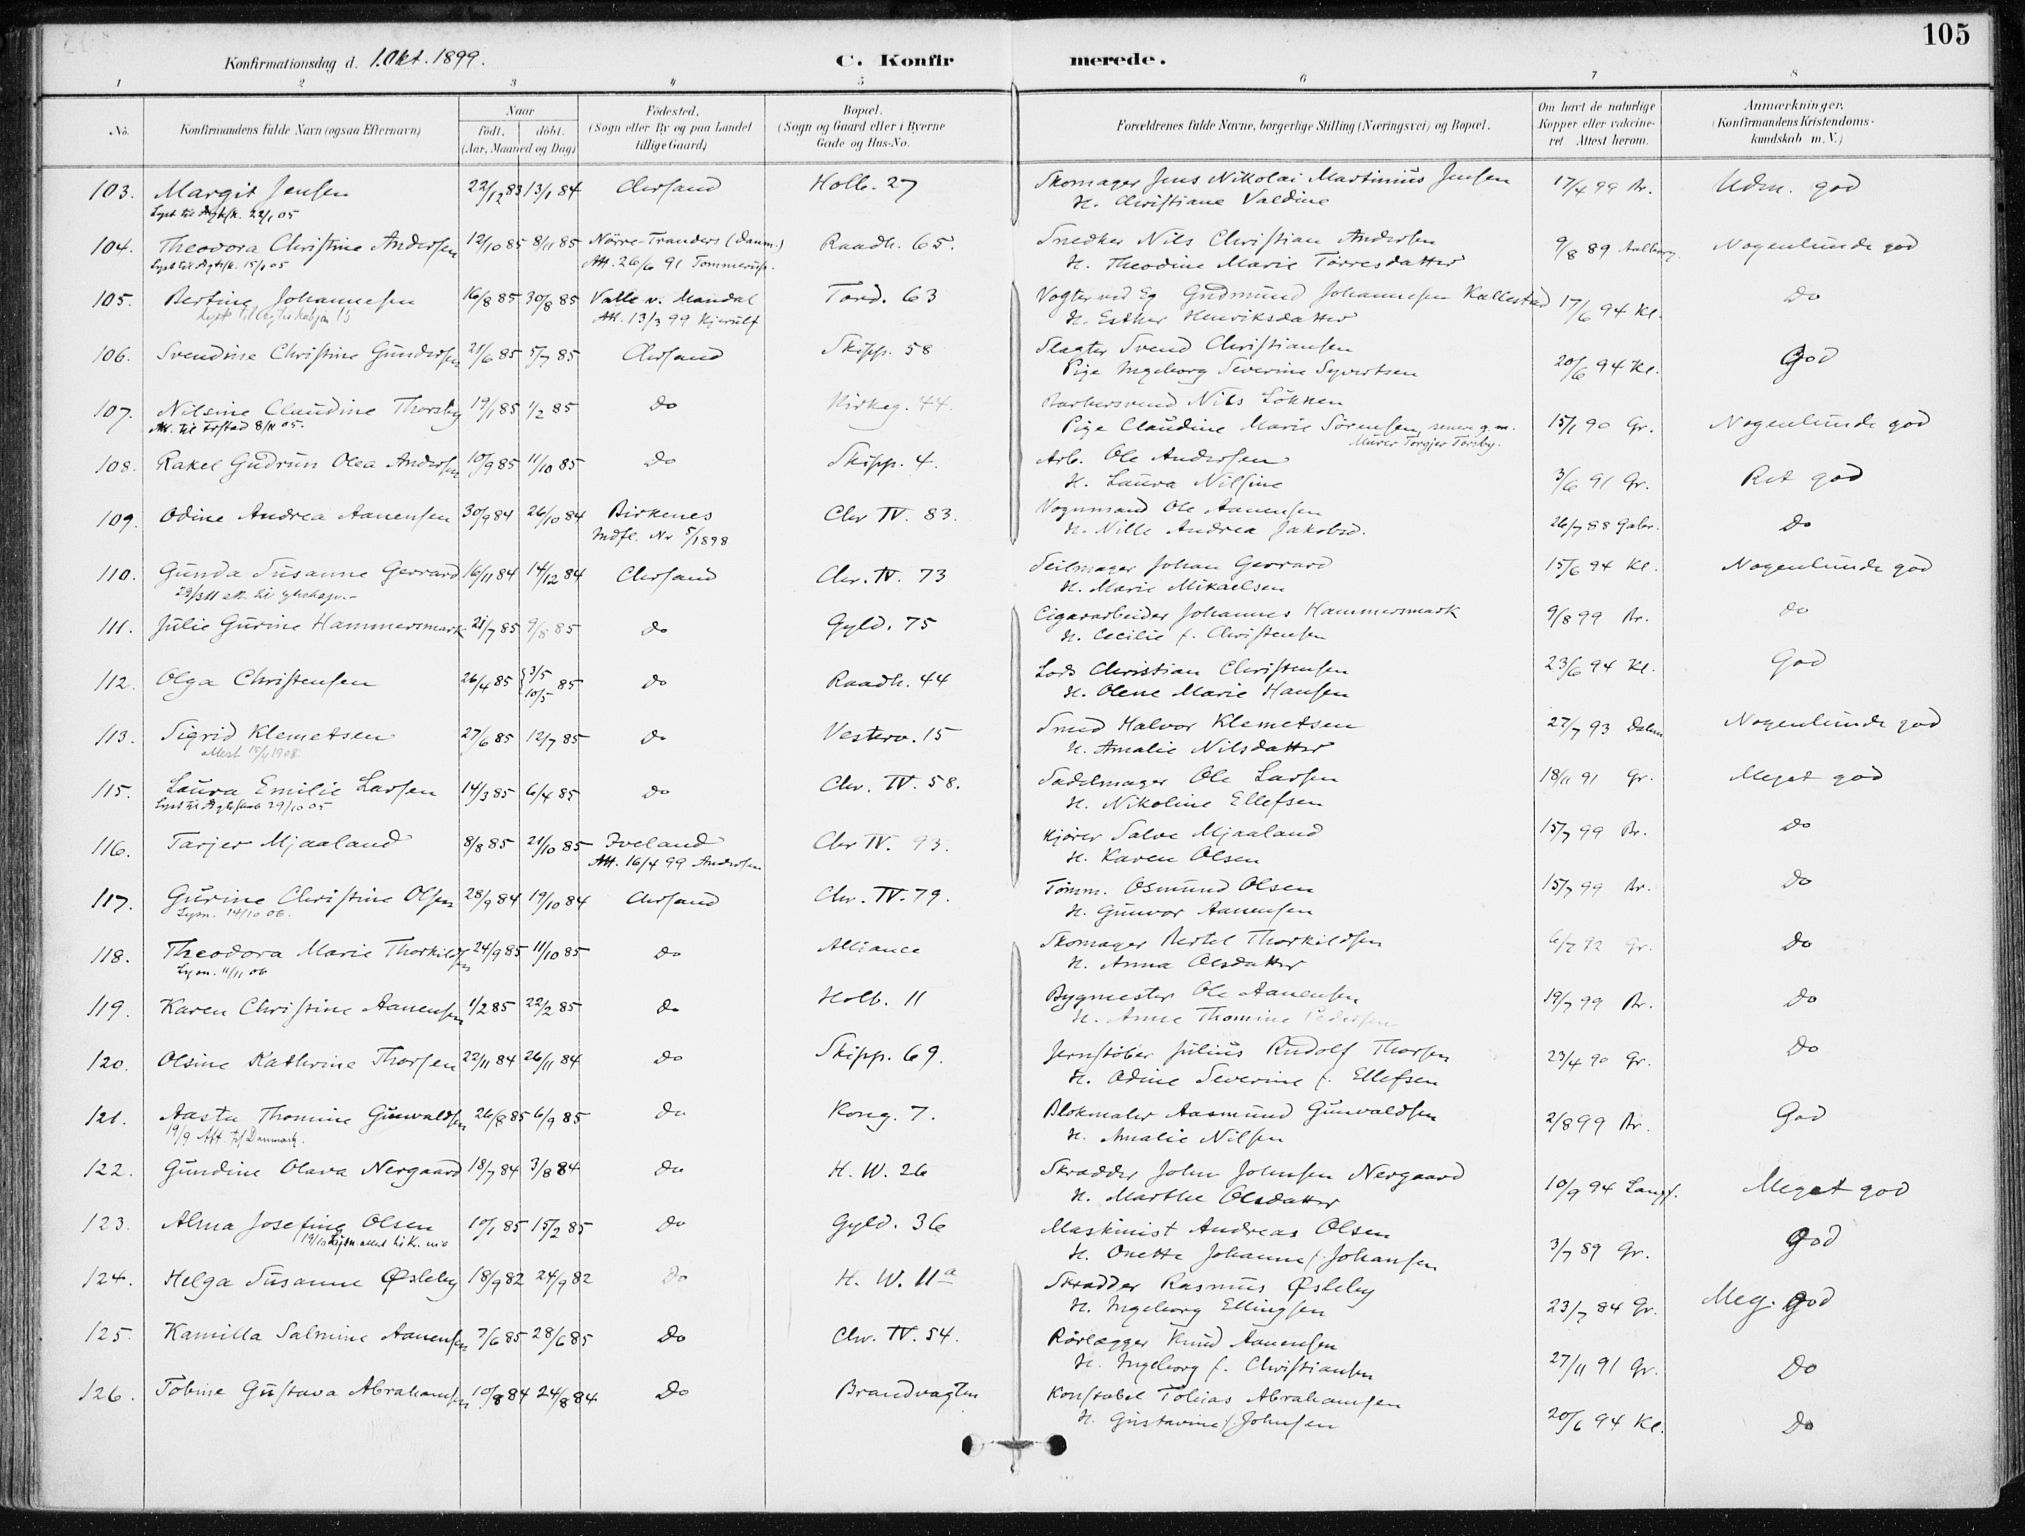 105
Konfirmationsdag d. 1. Okt. 1899.
C. Konfirmerede.
1 2 3 4 5 6 7 8
No.
Konfirmandens fulde Navn (ogsaa Efternavn)
Naar
født. døbt.
(Aar, Maaned og Dag)
Fødested.
(Sogn eller By og paa Landet
tillige Gaard)
Bopæl.
(Sogn og Gaard eller i Byerne
Gade og Hus-No.
Forældrenes fulde Navne, borgerlige Stilling (Næringsvei) og Bopæl.
Om havt de naturlige
Kopper eller vakcine-
ret. Attest herom.
Anmærkninger.
(Konfirmandens Kristendoms-
kundskab m. V.)
103. Margit Jensen 22/12 83 13/1 84 Chrsand Holb. 27 Skomager Jens Nikolai Martinius Jensen 17/4 99 Br. Udm. god
Lyst til Ægtsk. 22/1 05 H. Christiane Valdine
104. Theodora Christine Andersen 12/10 85 8/11 85 Nörre-Tranders (Danm.) Raadh. 65. Snedker Nils Christian Andersen 9/8 89 Aalborg. Nogenlunde god
Lyst til Ægtsk. 15/1 05 Att. 26/6 91 Tommerup. H. Theodine Marie Tørresdatter
105. Bertine Johannesen 16/8 85 30/8 85 Valle v. Mandal Tord. 63 Vogter ved Eg Gudmund Johannesen Kallestad 17/6 94 Kl. Do
Att. 13/3 99 Kjerulf H. Esther Henriksdatter
106. Svendine Christine Gundersen 21/6 85 5/7 85 Chrsand Skipp. 58 Slagter Svend Christiansen 20/6 94 Kl. God
Pige Ingeborg Severine Syvertsen
107. Nilsine Claudine Thorsby 19/1 85 1/2 85 Do Kirkeg. 44. Barbersvend Nils Löhnen 15/1 90 Gr. Nogenlunde god
Att. til 8/11 05. Pige Claudine Marie Sörensen, senere g. m.
Murer Torgjer Torsby.
108. Rakel Gudrun Olea Andersen 10/9 85 11/10 85 Do Skipp. 4. Arb. Ole Andersen 3/6 91 Gr. Ret god
H. Laura Nilsine
109. Odine Andrea Aanensen 30/9 84 26/10 84 Birkenes Chr IV. 83. Vognmand Ole Aanensen 26/7 88 Gabr. Do
Indfl. Nr 5/1898 H. Nille Andrea Jakobsd.
110. Gunda Susanne Gerrard 16/11 84 14/12 84 Chrsand Chr. IV. 73 Seilmager Johan Gerrard 15/6 94 Kl. Nogenlunde god
H. Marie Mikaelsen
111. Julie Gurine Hammersmark 21/7 85 9/8 85 do Gyld. 75 Cigararbeider Johannes Hammersmark 9/8 99 Br. do
H. Cecilie f. Christensen
112. Olga Christensen 26/4 85 {3/5 10/5 85 do Raadh. 44 Lods Christian Christensen 23/6 94 Kl. God
H. Olene Marie Hansen
113. Sigrid Klemetsen 27/6 85 12/7 85 do Vesterv. 15 Smed Halvor Klemetsen 27/7 93 Dalen Nogenlunde god
Attest 15/4 1908. H. Amalie Nilsdatter
115. Laura Emilie Larsen 14/3 85 6/4 85 do Chr. IV. 58. Sadelmager Ole Larsen 18/11 91 Gr. Meget god
Lyst til Ægteskab 29/10 05 H. Nikoline Ellefsen
116. Tarjer Mjaaland 8/8 85 21/10 85 Iveland Chr IV. 93. Kjører Salve Mjaaland 15/7 99 Br. do
Att. 16/4 99 Andersen H. Karen Olsen
117. Gurine Christine Olsen 28/9 84 19/10 84 Chrsand Chr. IV. 79. Tømm. Osmund Olsen 15/7 99 Br. Do
Lysn. 14/10 06. H. Gunvor Aanensen
118. Theodora Marie Thorkildsen 24/9 85 11/10 85 do Alliance Skomager Bertel Thorkildsen 6/7 92 Gr. Do
Lysn. 11/11 06 H. Anna Olsdatter
119. Karen Christine Aanensen 1/2 85 22/2 85 do Holb. 11 Bygmester Ole Aanensen 19/7 99 Br. Do
H. Anne Thomine Pedersen
120. Olsine Kathrine Thorsen 22/11 84 26/11 84 do Skipp. 69. Jernstöber Julius Rudolf Thorsen 23/4 90 Gr. Do
H. Odine Severine f. Ellefsen
121. Aasta Thomine Gunvaldsen 26/8 85 6/9 85 do Kong. 7. Blokmaker Aasmund Gunvaldsen 2/8 99 Br. God
19/9 Att. til Danmark. H. Amalie Nilsen
122. Gundine Olava Nergaard 18/7 84 3/8 84 do H. W. 26 Skrædder John Johnsen Nergaard 10/9 94 Langf. Meget god
H. Marthe Olsdatter
123. Alma Josefine Olsen 10/1 85 15/2 85 do Gyld. 36 Maskinist Andreas Olsen 3/7 89 Gr. God
H. Onette Johanne f. Johansen
124. Helga Susanne Øsleby 18/9 82 24/9 82 Do H. W. 11a Skrædder Rasmus Øsleby 23/7 84 Gr. Meg. god
H. Ingeborg Ellingsen
125. Kamilla Salmine Aanensen 7/6 85 28/6 85 Do Chr. IV. 54. Rørlægger Knud Aanensen 27/11 91 Gr. Do
H. Ingeborg f. Christiansen
126. Tobine Gustava Abrahamsen 10/8 84 24/8 84 Do Brandvagten Konstabel Tobias Abrahamsen 20/6 94 Kl. Do
H. Gustavine f. Johnsen